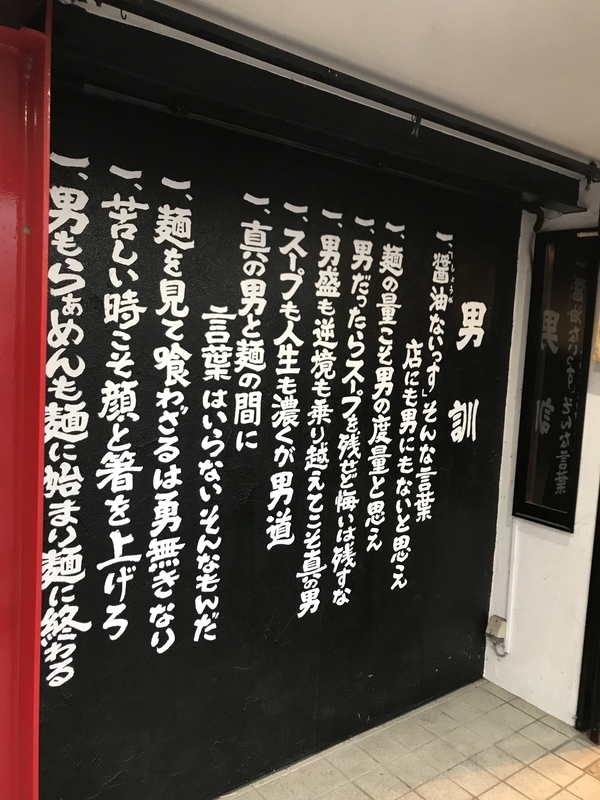 男訓
一、「醤油ないっす」そんな言葉
しょうゆ
店にも男にもないと思え
一、麺の量こそ男の度量と思え
一、男だったらスープを残せど悔いは残すな
一、男盛も逆境も乗り越えてこそ真の男
一、スープも人生も濃くが男道
一、真の男と麺の間に
言葉はいらないそんなもんだ
一、麺を見て喰わざるは勇無きなり
一、苦しい時こそ顔と箸を上げろ
一、男もらぁめんも麺に始まり麺に終わる
男訓
一、醤油ないっす」そんな言葉